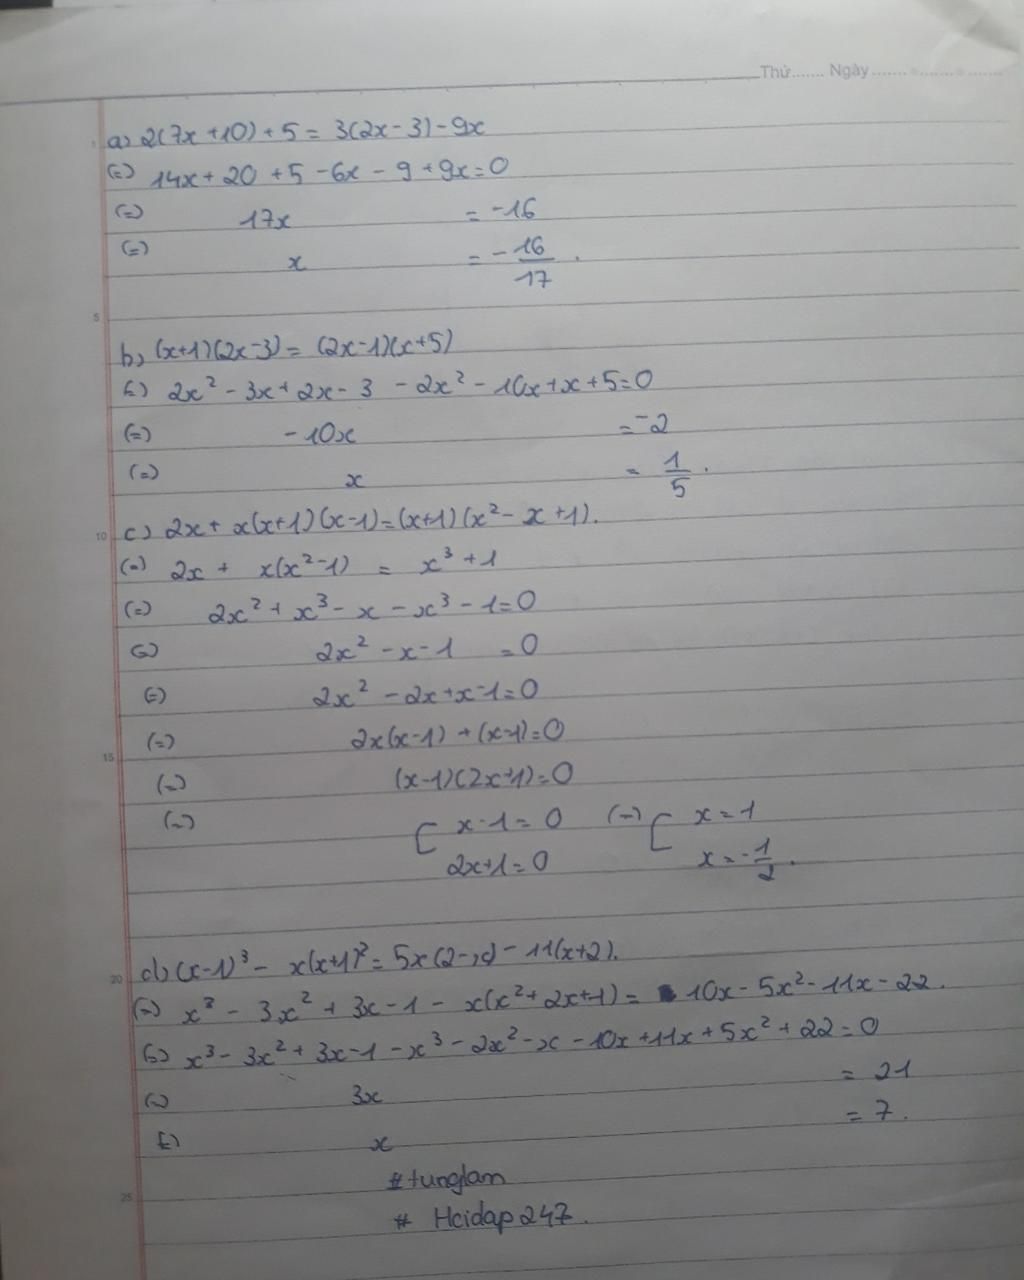 Thứ....... Ngày...................
a) 2(7x+10)+5 = 3(2x-3)-9x
(=) 14x + 20 + 5 - 6x - 9 + 9x = 0
(=) 17x = -16
(=) x = -16/17.
5
b) (x+1)(2x-3) = (2x-1)(x+5)
(=) 2x² - 3x + 2x - 3 - 2x² - 10x + x + 5 = 0
(=) -10x = -2
(=) x = 1/5.
10 c) 2x + x(x+1)(x-1) = (x+1)(x² - x + 1).
(=) 2x + x(x²-1) = x³ + 1
(=) 2x² + x³ - x - x³ - 1 = 0
(=) 2x² - x - 1 = 0
(=) 2x² - 2x + x - 1 = 0
(=) 2x(x-1) + (x-1) = 0
15
(=) (x-1)(2x+1) = 0
(=) [ x-1 = 0 (=) [ x = 1
2x+1 = 0 x = -1/2.
20 d) (x-1)³ - x(x+1)² = 5x(2-x) - 11(x+2).
(=) x³ - 3x² + 3x - 1 - x(x² + 2x + 1) = 10x - 5x² - 11x - 22.
(=) x³ - 3x² + 3x - 1 - x³ - 2x² - x - 10x + 11x + 5x² + 22 = 0
(=) 3x = 21
(=) x = 7.
#tunglam
25
# Hcidap247.